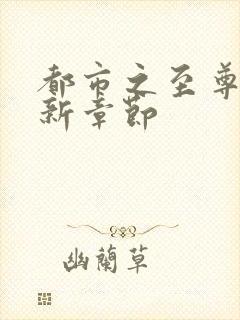 都市之至尊
新章节
幽蘭草